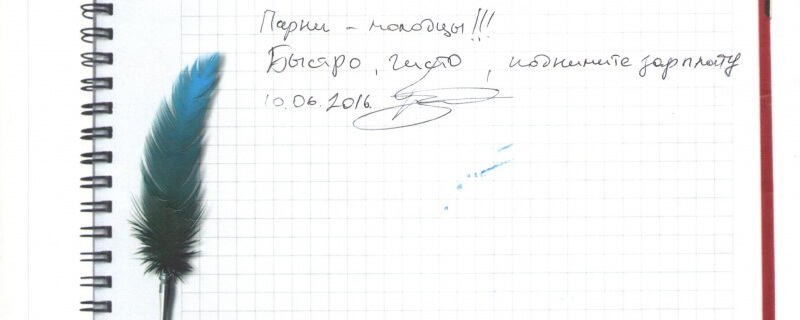 Парни - молодцы!!!
Быстро, чисто, поднимите зарплату
10.06.2016